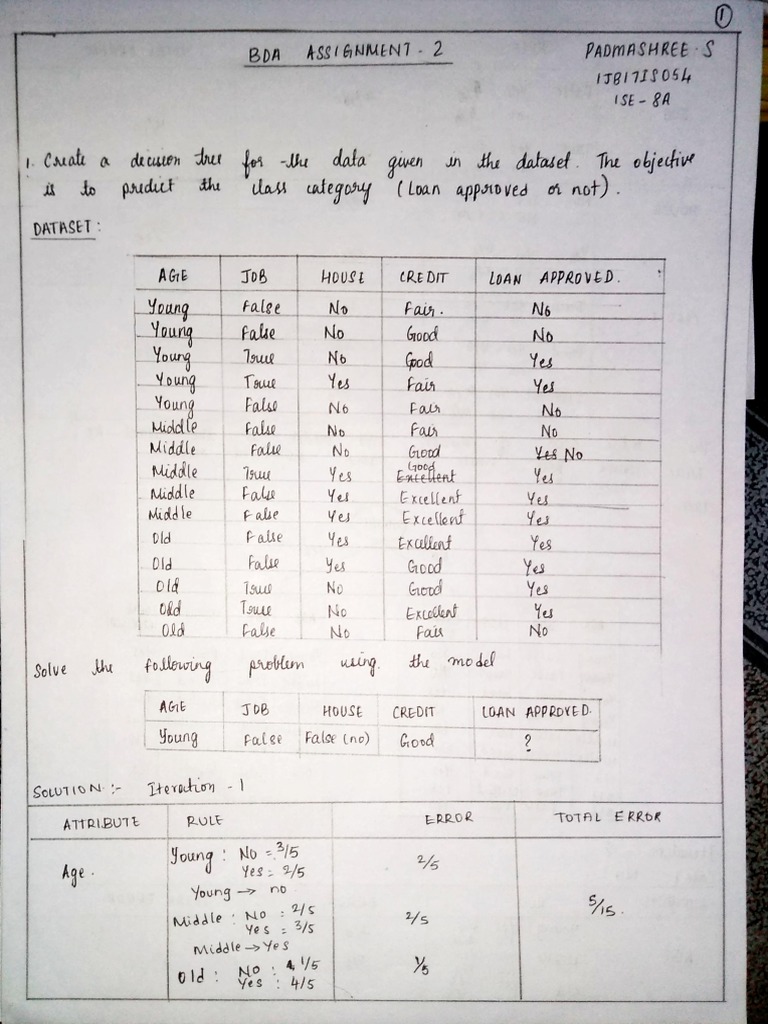 1
BDA ASSIGNMENT - 2
PADMASHREE - S
1JB17IS054
ISE - 8A
1. Create a decision tree for the data given in the dataset. The objective
is to predict the class category (Loan approved or not).
DATASET :
AGE JOB HOUSE CREDIT LOAN APPROVED.
Young False No Fair. No
Young False No Good No
Young True No Good Yes
Young True Yes Fair Yes
Young False No Fair No
Middle False No Fair No
Middle False No Good Yes No
Middle True Yes Good Excellent Yes
Middle False Yes Excellent Yes
Middle False Yes Excellent Yes
Old False Yes Excellent Yes
Old False Yes Good Yes
Old True No Good Yes
Old True No Excellent Yes
Old False No Fair No
Solve the following problem using the model
AGE JOB HOUSE CREDIT LOAN APPROVED.
Young False False (no) Good ?
SOLUTION :- Iteration - 1
ATTRIBUTE RULE ERROR TOTAL ERROR
Age. Young : No = 3/5 2/5
Yes = 2/5
Young → no
Middle : No : 2/5 2/5 5/15.
Yes = 3/5
Middle → Yes
Old : No : 1/5 1/5
Yes : 4/5